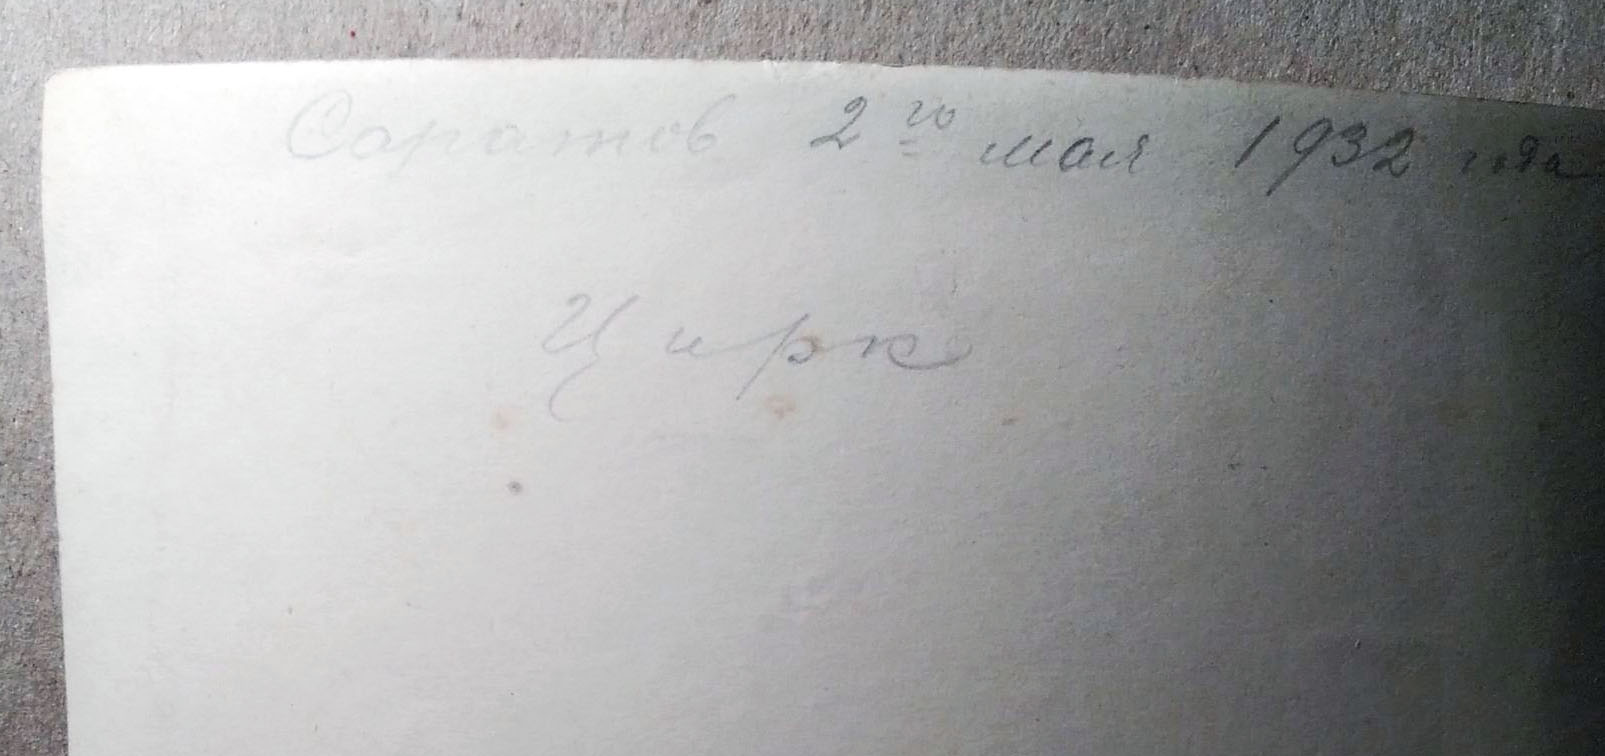 Саратов 2го мая 1932 года
Цирк